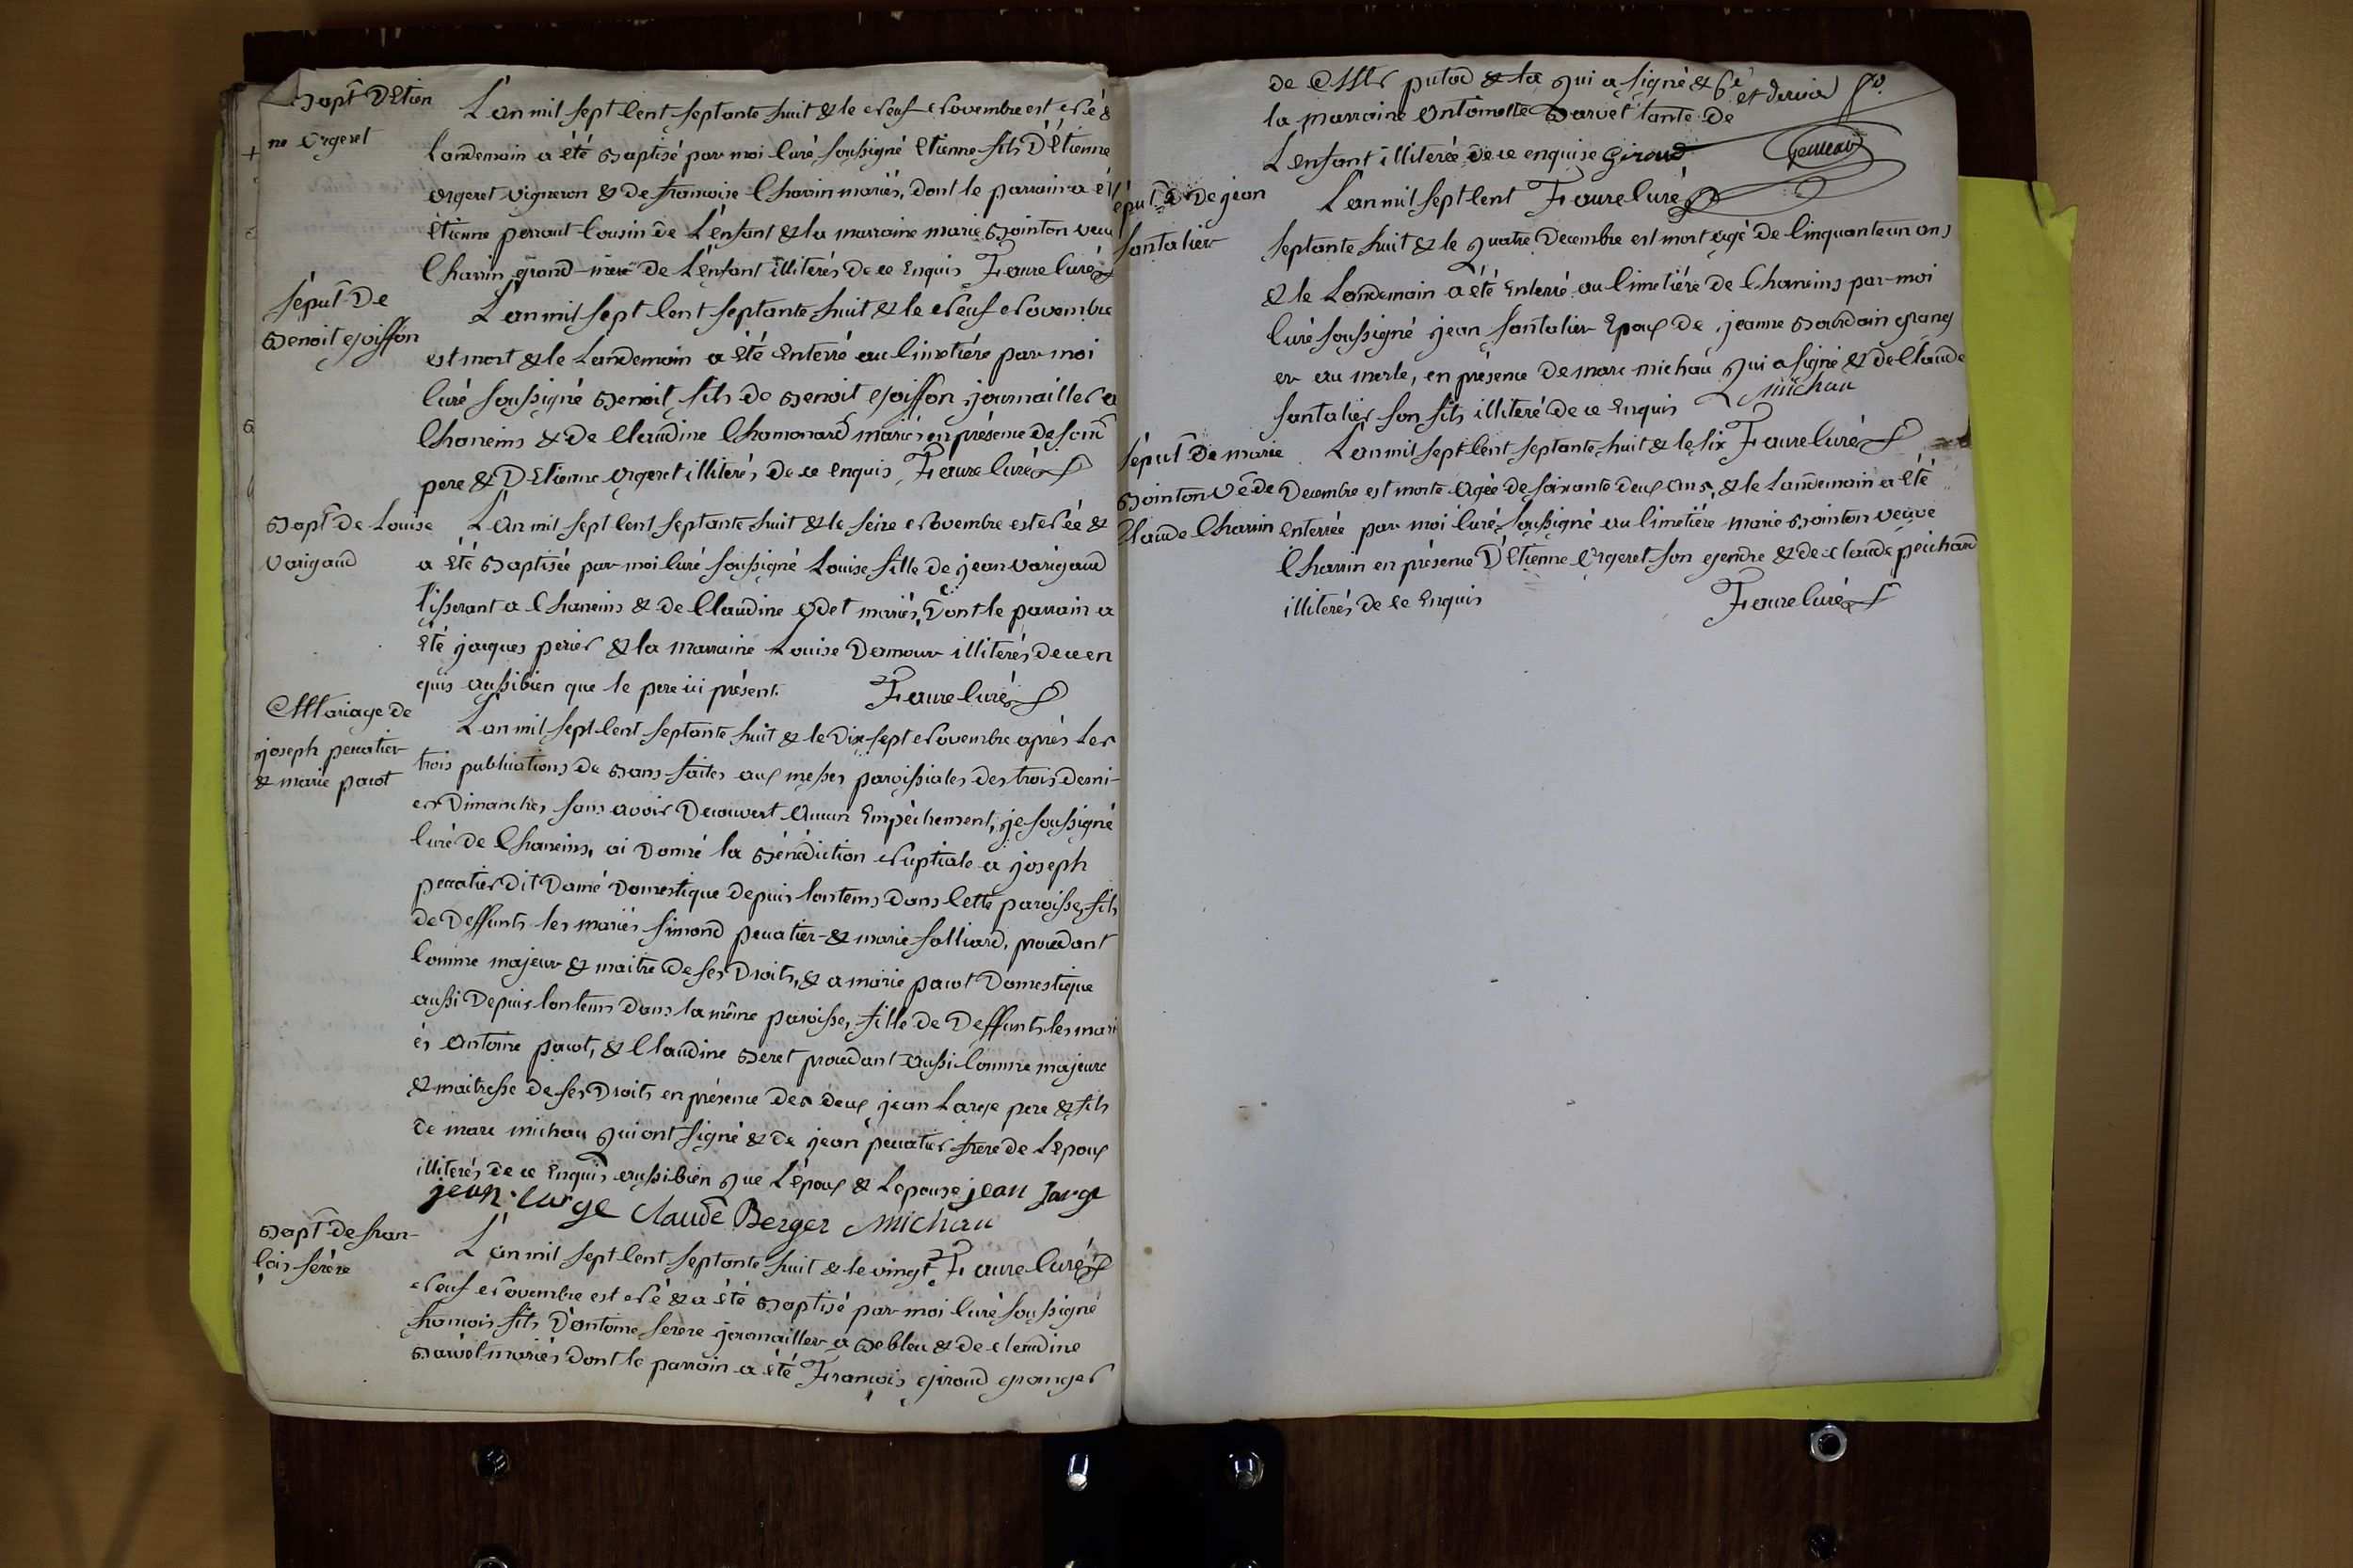 Bapt. D'Etien
ne Orgeret
L'an mil sept Cent septante huit & le Neuf Novembre est Né &
Landemain a été Baptisé par moi Curé soussigné Etienne fils D'Étienne
Orgeret vigneron & de francoise Charrin mariés, dont le parrain a ét
Étienne perraut Cousin de L'enfant & la marraine marie Bointon veuv
Charrin grand-mere de L'enfant illiterés de ce Enquis Faure Curé
Sépult De
Benoit Goiffon
L'an mil sept Cent septante huit & le Neuf Novembre
est mort & le Landemain a été Enterré au Cimetiére par moi
Curé soussigné Benoit fils de Benoit Goiffon journailler a
Chaneins & de Claudine Chamonard mariés en présence de son
pere & D'Etienne Orgeret illiterés de ce Enquis Faure Curé
Bapt de Louise
Varigaud
L'an mil sept Cent septante huit & le seize Novembre est Née &
a été Baptisée par moi Curé soussigné Louise fille de jean Varigaud
Tisserant a Chaneins & de Claudine Odet mariés, Dont le parrain a
été jacques perier & la marraine Louise Damour illiterés de ce en
quis aussibien que le pere ici présent. Faure Curé
Mariage de
joseph perratier
& marie pacot
L'an mil sept Cent septante huit & le Dix sept Novembre aprés Les
trois publications de Bans faites aux messes paroissiales des trois derni-
ers Dimanches sans avoir Decouvert Aucun Empêchement, je soussigné
Curé de Chaneins, ai Donné la Bénédiction Nuptiale a joseph
perratier dit Damé Domestique depuis lontems dans Cette paroisse, fils
de Deffunts les mariés simond perratier & marie salliard, procedant
Comme majeur & maitre de ses Droits, & a marie pacot Domestique
aussi Depuis lontems dans la même paroisse, fille de Deffunts les mari
és Antoine pacot, & Claudine Beret procedant aussi Comme majeure
& maitresse de ses Droits en présence des deux jean Large pere & fils
de marc michau Qui ont signé & de jean perratier frere de L'epoux
illiterés de ce Enquis aussibien Que L'époux & L'epouse jean Large
jean large Claude Berger Michau
Bapt de fran-
çois serére
L'an mil sept Cent septante huit & le vingt Faure Curé
Neuf Novembre est Né & a été Baptisé par moi Curé soussigné
francois fils D'antoine serere journailler a Bebleu & de Claudine
mariés Dont le parrain a été Francois Giroud granger
de Mr putod & la Qui a signé &
la marraine Antoinette tante de
L'enfant illiterée de ce enquise Giroud
épult de jean
santalier
L'an mil sept Cent Faure Curé
septante huit & le Quatre Decembre est mort agé de Cinquante un ans
& le Landemain a été Enterré au Cimetiére de Chaneins par moi
Curé soussigné jean santalier Epoux de jeanne Bourdain grang
er au merle, en présence de marc michau Qui a signé & de Claude
santalier son fils illiteré de ce Enquis Michau
Sépult de marie
Bointon vé de
Claude Charrin
L'an mil sept Cent septante huit & le six Faure Curé
Decembre est morte Agée de soixante deux Ans, & le Landemain a été
Enterrée par moi Curé soussigné au Cimetiére marie Bointon veuve
Charrin en présence D'Etienne Orgeret son gendre & de Claude péchard
illiterés de ce Enquis Faure Curé